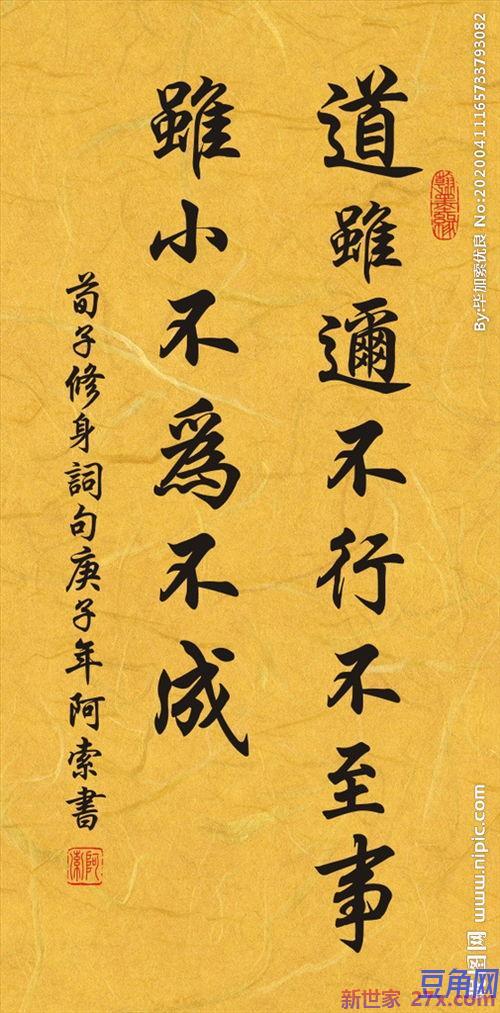 道雖邇不行不至事
雖小不為不成
荀子修身詞句庚子年阿索書
翰墨緣
阿索
By:毕加索优良 No:20200411165733793082
图网 www.nipic.com
豆角网
新世家 27x.com